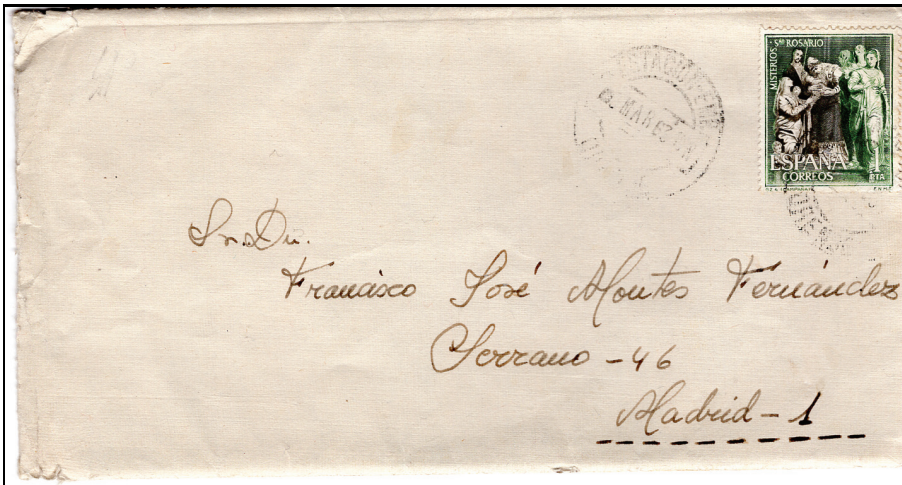 MISTERIOS · Sᵐᵒ ROSARIO
ESPAÑA
CORREOS
PTA
MAR 62
Sr. Dn.
Francisco José Montes Fernández
Serrano - 46
Madrid - 1